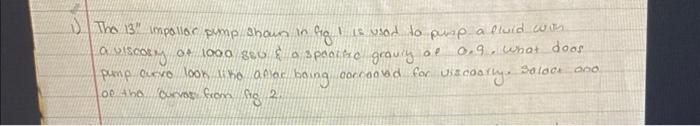 1) The 13" impeller pump shown in fig 1 is used to pump a fluid with
a viscosity of 1000 SSU & a specific gravity of 0.9. What does
pump curve look like after being corrected for viscosity. Select one
of the curves from fig 2.